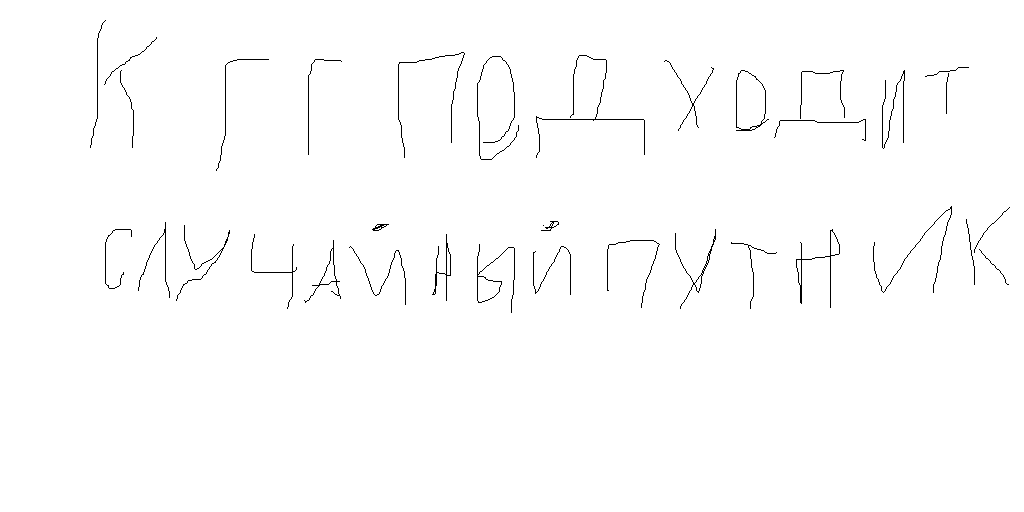 К ГГ ПОДХОДИТ
СЛУЧАЙНЫЙ ПУТНИК